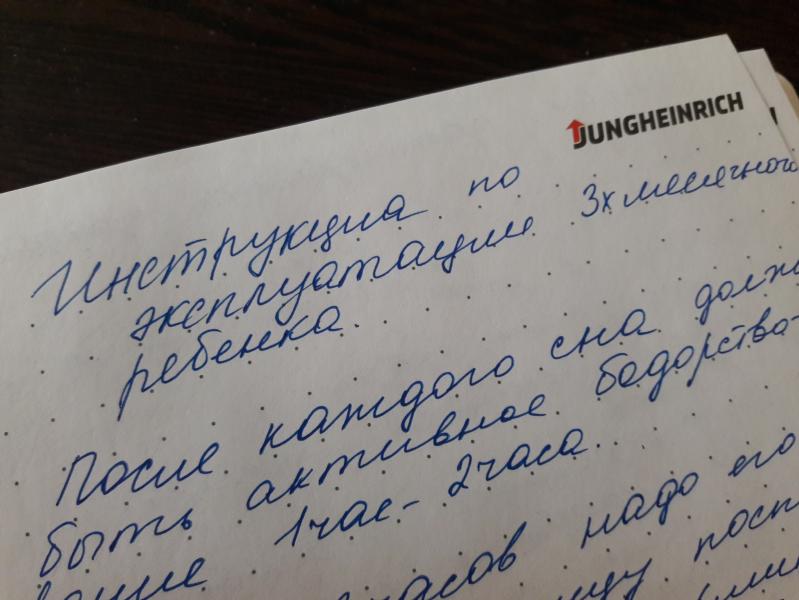 JUNGHEINRICH
Инструкциа по
эксплуатации 3х месячного
ребенка.
После каждого сна
быть активное бодорства-
вание 1час- 2часа.
часов надо его